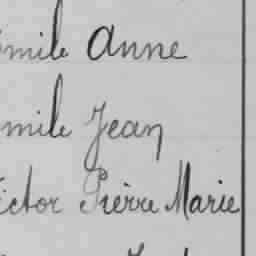 mile Anne
mile Jean
ictor Pierre Marie